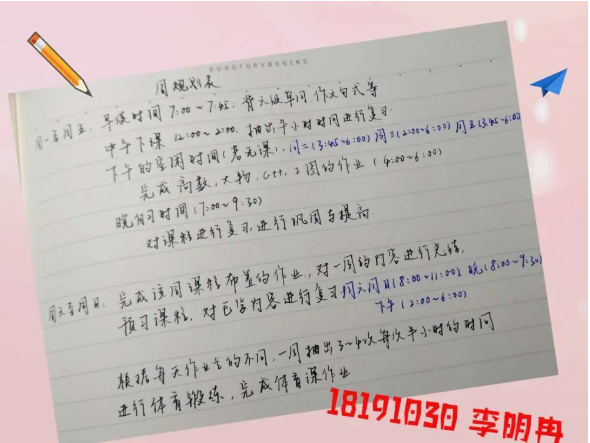 OURSTORYBEGINS
周规划表
周一至周五：早读时间 7:00~7:45：背六级单词 作文句式等
中午下课 12:00~2:00，抽出半小时时间进行复习
下午的空闲时间(若无课)，周二(3:45~6:00) 周三(2:00~6:00) 周五(3:45~6:00)
完成高数，大物，C++，工图的作业 (4:00~6:00)
晚自习时间(7:00~9:30)
对课程进行复习，进行巩固与提高
周六至周日：完成该周课程布置的作业，对一周的内容进行总结，
预习课程，对已学内容进行复习 周六周日(8:00~11:00) 晚(8:00~9:30)
下午(2:00~6:00)
根据每天作业量的不同，一周抽出3~4次每次半小时的时间
进行体育锻炼，完成体育课作业
18191030 李明冉